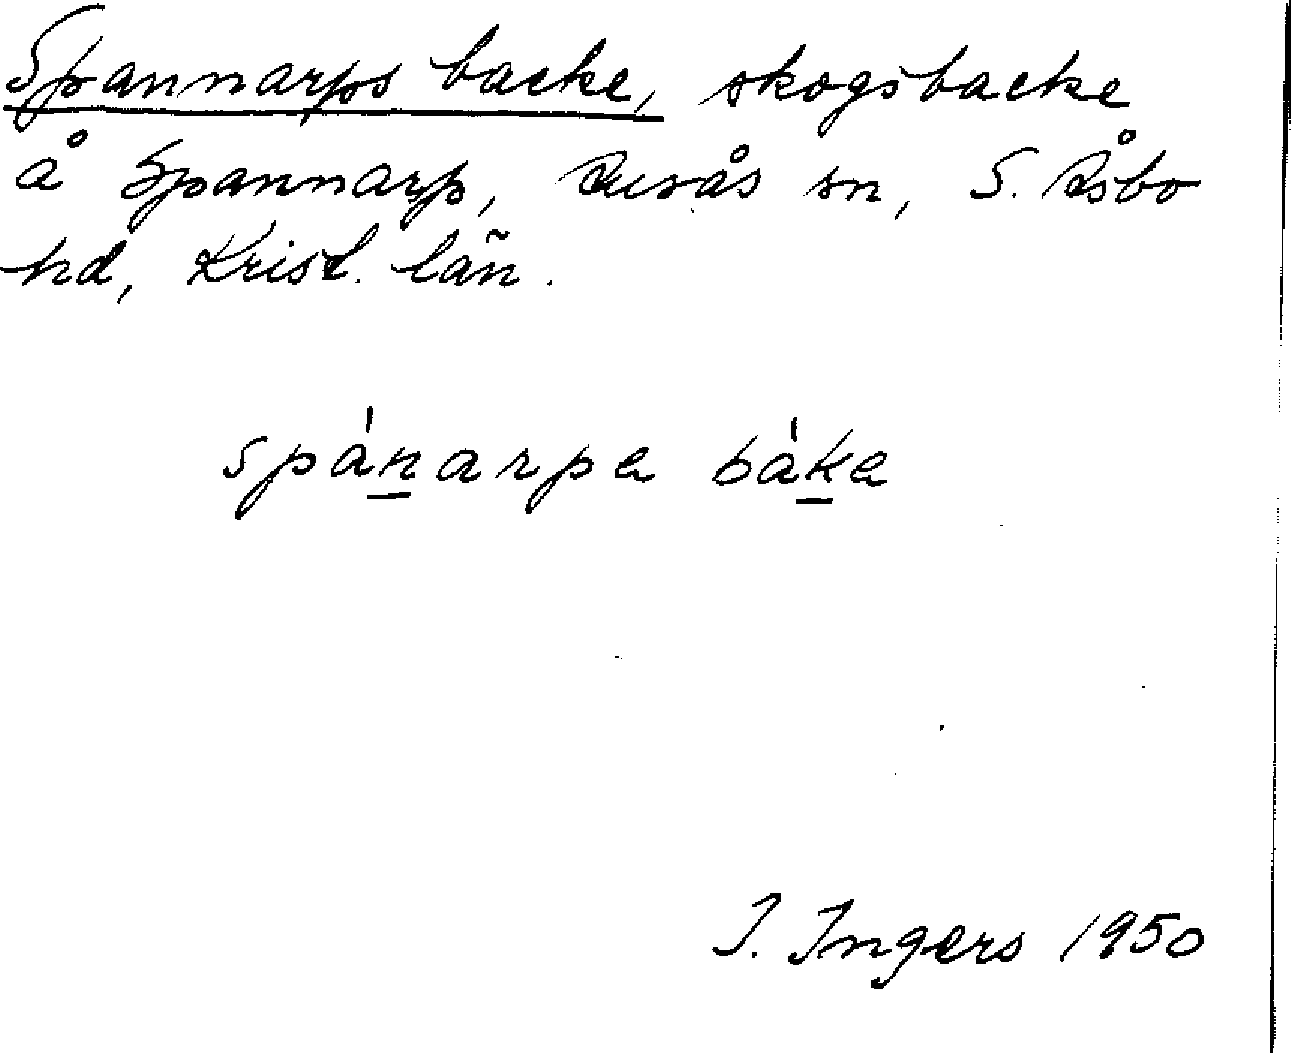 Spannarps backe, skogsbacke
å Spannarp, Ausås sn, S. Åsbo
hd, Krist. län.
spànarpa bàka
I. Ingers 1950